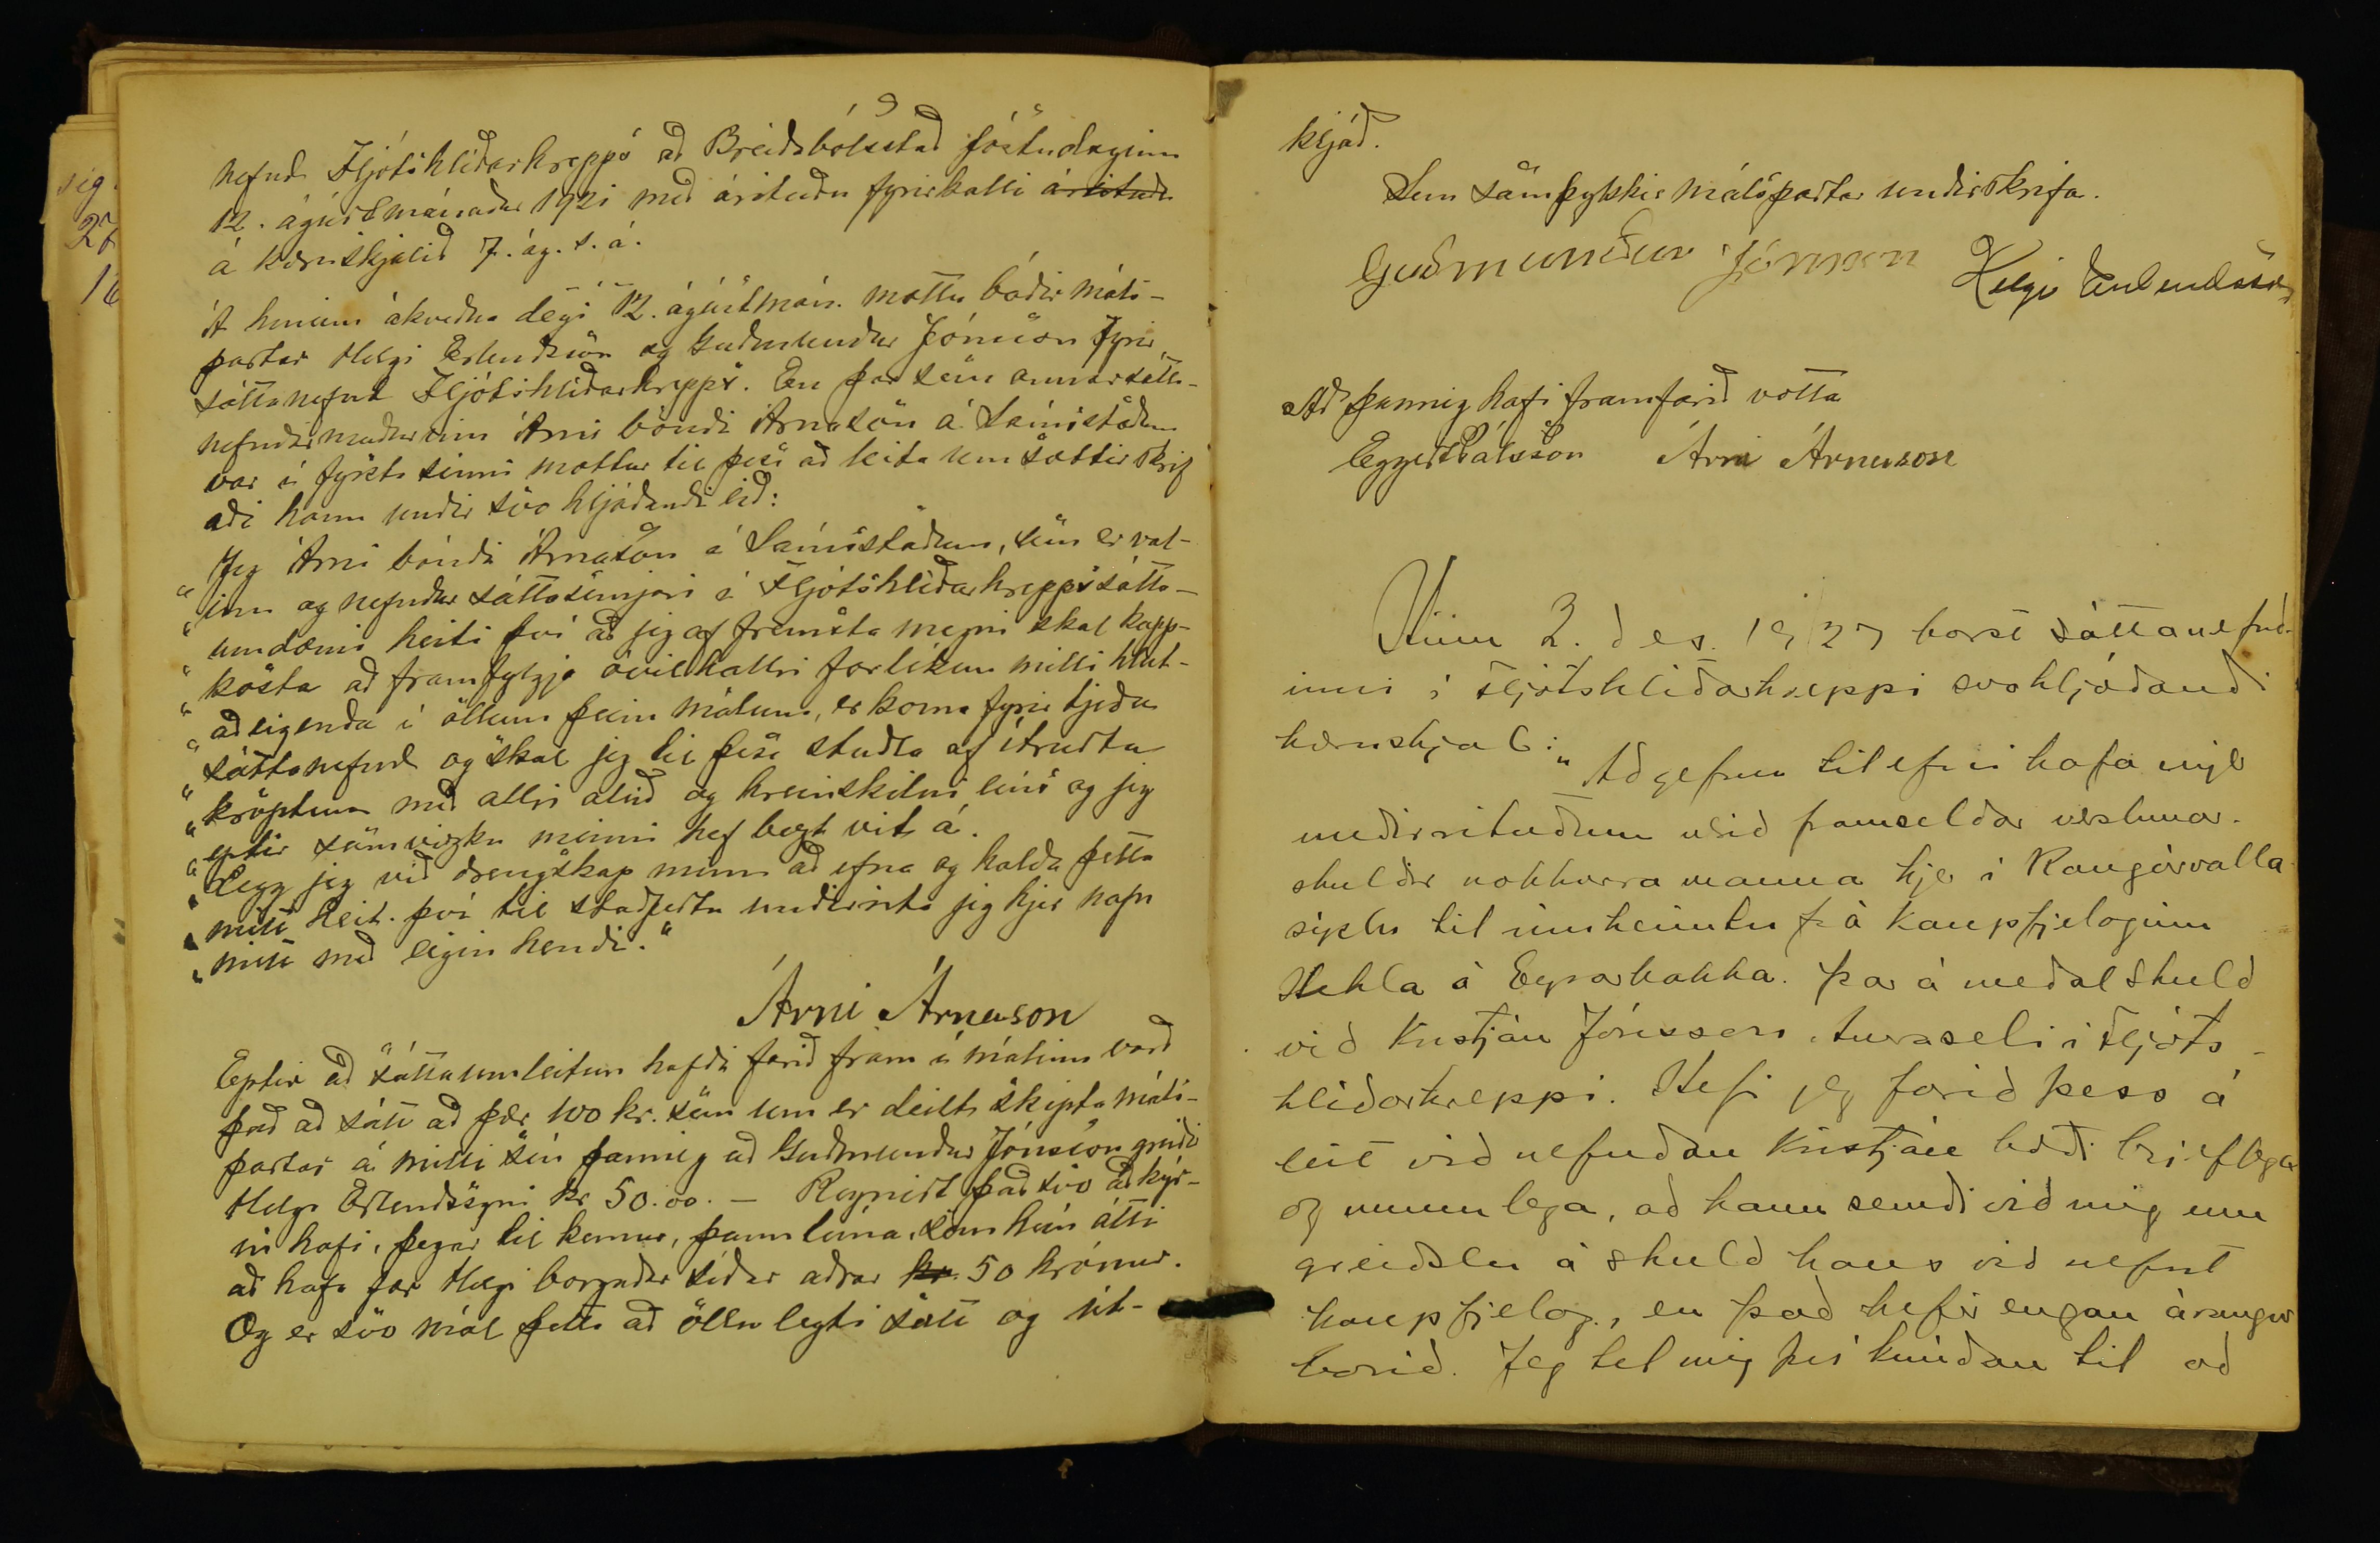 nefnd Fljótshlíðarhrepps að Breiðabólsstað föstudaginn
12. ágústmánaðar 1921 með árituðu fyrirkalli árituðu
á kæruskjalið 7. ág. s. á.
Á hinum ákveðna degi 12. ágústmán. mættu báðir máls-
partar Helgi Erlendsson og Guðmundur Jónsson fyrir
sáttanefnd Fljótshlíðarhrepps. En þar sem annar sátta-
nefndarmaðurinn Árni bóndi Árnason á Sámsstöðum
var í fyrsta sinni mættur til þess að leita um sættir skrif
aði hann undir svo hljóðandi eið:
Jeg Árni bóndi Árnason á Sámsstöðum, sem er val-
"inn og nefndur sáttasemjari í Fljótshlíðarhrepps sátta-
"umdæmi heiti því að jeg af fremsta megni skal kapp-
"kosta að framfylgja óvilhallri forlíkun milli hlut-
"aðeigenda í öllum þeim málum, er koma fyrir tjeða
"sáttanefnd og skal jeg til þess stuðla af ítrustu
"kröptum með allri alúð og hreinskilni eins og jeg
"eptir samvizku minni hef bezt vit á.
"Legg jeg við drengskap minn að efna og halda þetta
"mitt heit. því til staðfestu undirrita jeg hjer nafn
"mitt með eigin hendi."
Árni Árnason
Eptir að sáttaumleitun hafði farið fram í málinu varð
það að sátt að þær 100 kr. sem um er deilt skipta máls-
partar á milli sín þannig að Guðmundur Jónsson greiði
Helga Erlendssyni kr 50.00. – Reynist það svo að kýr-
in hafi, þegar til kemur, þann tíma, sem hún átti
að hafa þar Helgi borgaðar síðar aðrar kr. 50 krónur.
Og er svo mál þetta að öllu leyti sátt og út-
kljáð.
Sem samþykkir málspartar undirskrifa.
Guðmundur Jónsson Helgi Erlendsson
Að þannig hafi framfarið votta
Eggert Pálsson Árni Árnason
Hinn 2. des. 1927 barst sáttanefnd-
inni í Fljótshlíðarhreppi svohljóðandi
kæruskjal:
"Að gefnu tilefni hafa mjer
undirrituðum verið framseldar verslunar-
skuldir nokkurra manna hjer í Rangárvalla
sýslu til innheimtu frá Kaupfjelaginu
Hekla á Eyrarbakka. Þar á meðal skuld
við Kristján Jónsson Auraseli í Fljóts-
hlíðarhreppi. Hefi jeg farið þess á
leit við nefndan Kristján bæði brjeflega
og munnlega, að hann semdi við mig um
greiðslu á skuld hans við nefnt
kaupfjelag, en það hefir engan árangur
borið. Jeg tel mig því knúðan til að